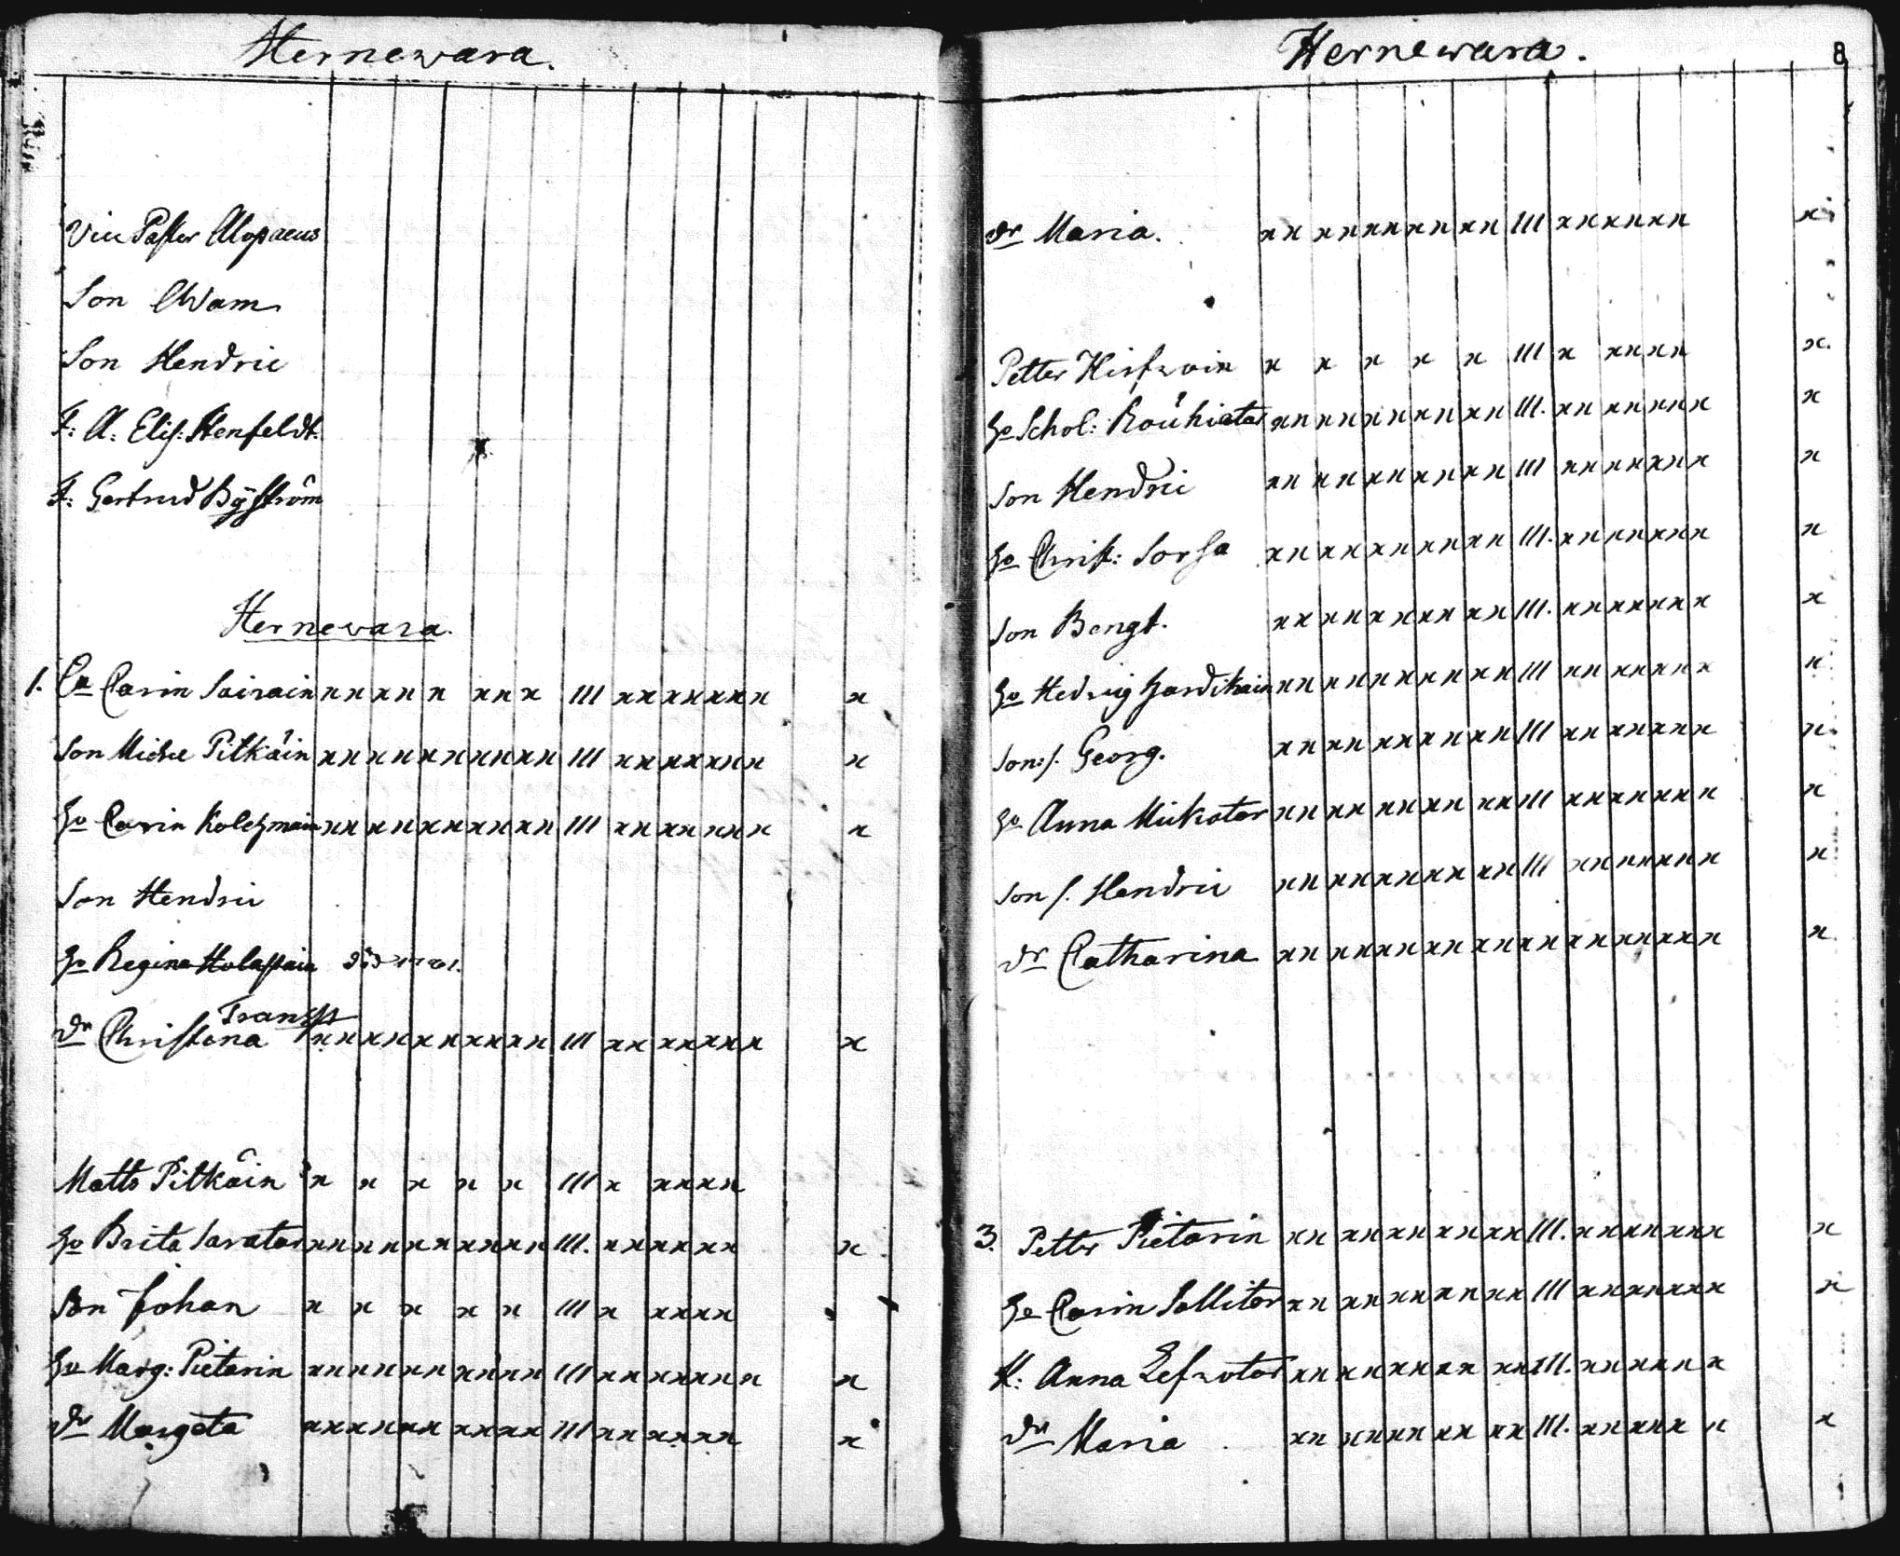 Hernewara.
Vice Pastor Alopaeus
Son Adam
Son Hendric
F: A: Elis: Stenfeldt.
F: Gertrud Byström
Hernewara.
1. Ea Carin Sairain x x x x x x x x III x x x x x x x x
Son Michel Pitkäin x x x x x x x x x x III x x x x x x x x
Ho Carin Kolehmain x x x x x x x x x x III x x x x x x x x
Son Hendric
Ho Regina Holapain
Transp
Dr Christena x x x x x x x x x x III x x x x x x x x
Matts Pitkäin x x x x x III x x x x x
Ho Brita Savatar x x x x x x x x x x III. x x x x x x x x
Son Johan x x x x x III x x x x x
Ho Marg: Pietarin x x x x x x x x x x III x x x x x x x x
Dr Margeta x x x x x x x x x x III x x x x x x x
Hernewara. 8
Dr Maria. x x x x x x x x x x III x x x x x x x
Petter Hirfwoin x x x x x III x x x x x x.
Ho Schol: Rouhiatar x x x x x x x x x x III. x x x x x x x x
Son Hendric x x x x x x x x x x III x x x x x x x x
Ho Christ: Sorsa x x x x x x x x x x III. x x x x x x x x
Son Bengt. x x x x x x x x x x III. x x x x x x x x
Ho Hedvig Hardikain x x x x x x x x x x III x x x x x x x x
Son s. Georg. x x x x x x x x x x III x x x x x x x x
Ho Anna Mickotar x x x x x x x x x x III x x x x x x x x
Son s. Hendric x x x x x x x x x x III x x x x x x x x
Dr Catharina x x x x x x x x x x x x x x x x x x x x
3. Petter Pietarin x x x x x x x x x x III. x x x x x x x x
Ho Carin Sallitar x x x x x x x x x x III x x x x x x x x
H: Anna Lefwotar x x x x x x x x x x III. x x x x x x
Dr Maria x x x x x x x x x x III. x x x x x x x